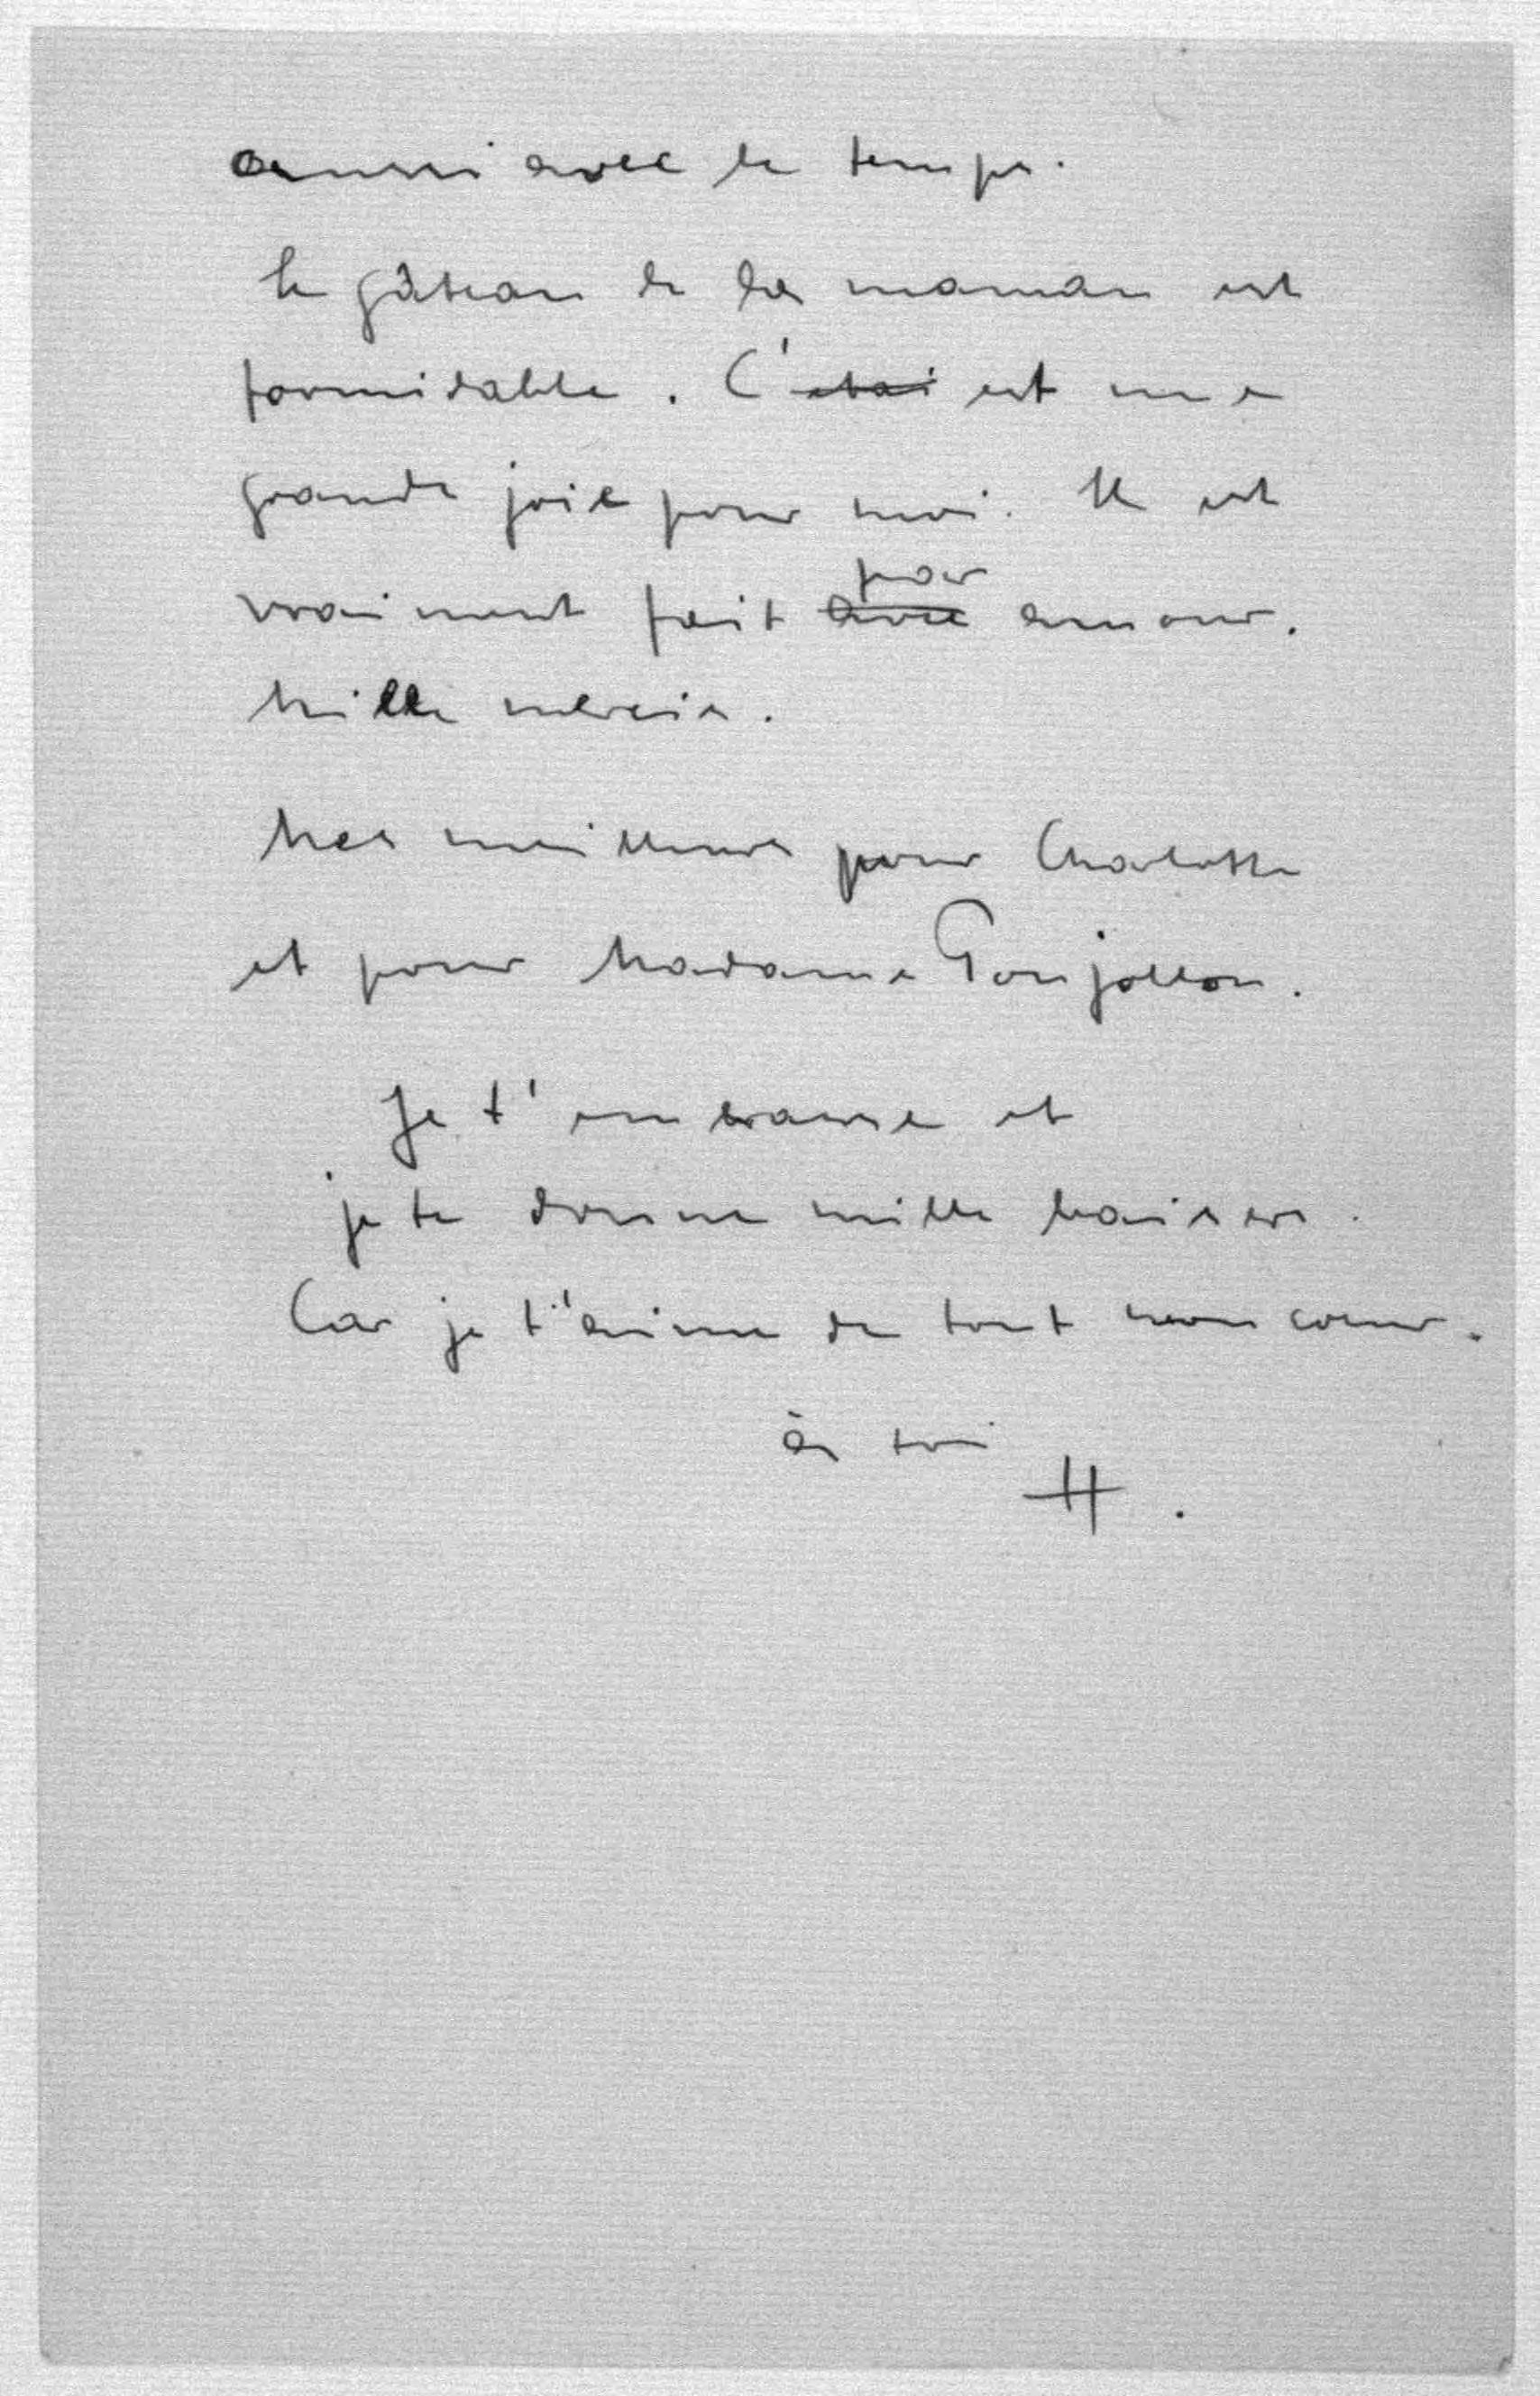 aussi avec le temps.
le gâteau de la maman est
formidable. C'~~etai~~ est une
grande joie pour moi. Il est
par
vraiment fait ~~avec~~ amour.
Mille mercis.
Mes meilleurs pour Charlotte
et pour Madame Goujollon.
Je t'embrasse et
je te donne mille baisers.
Car je t'aime de tout mon coeur.
à toi
H.